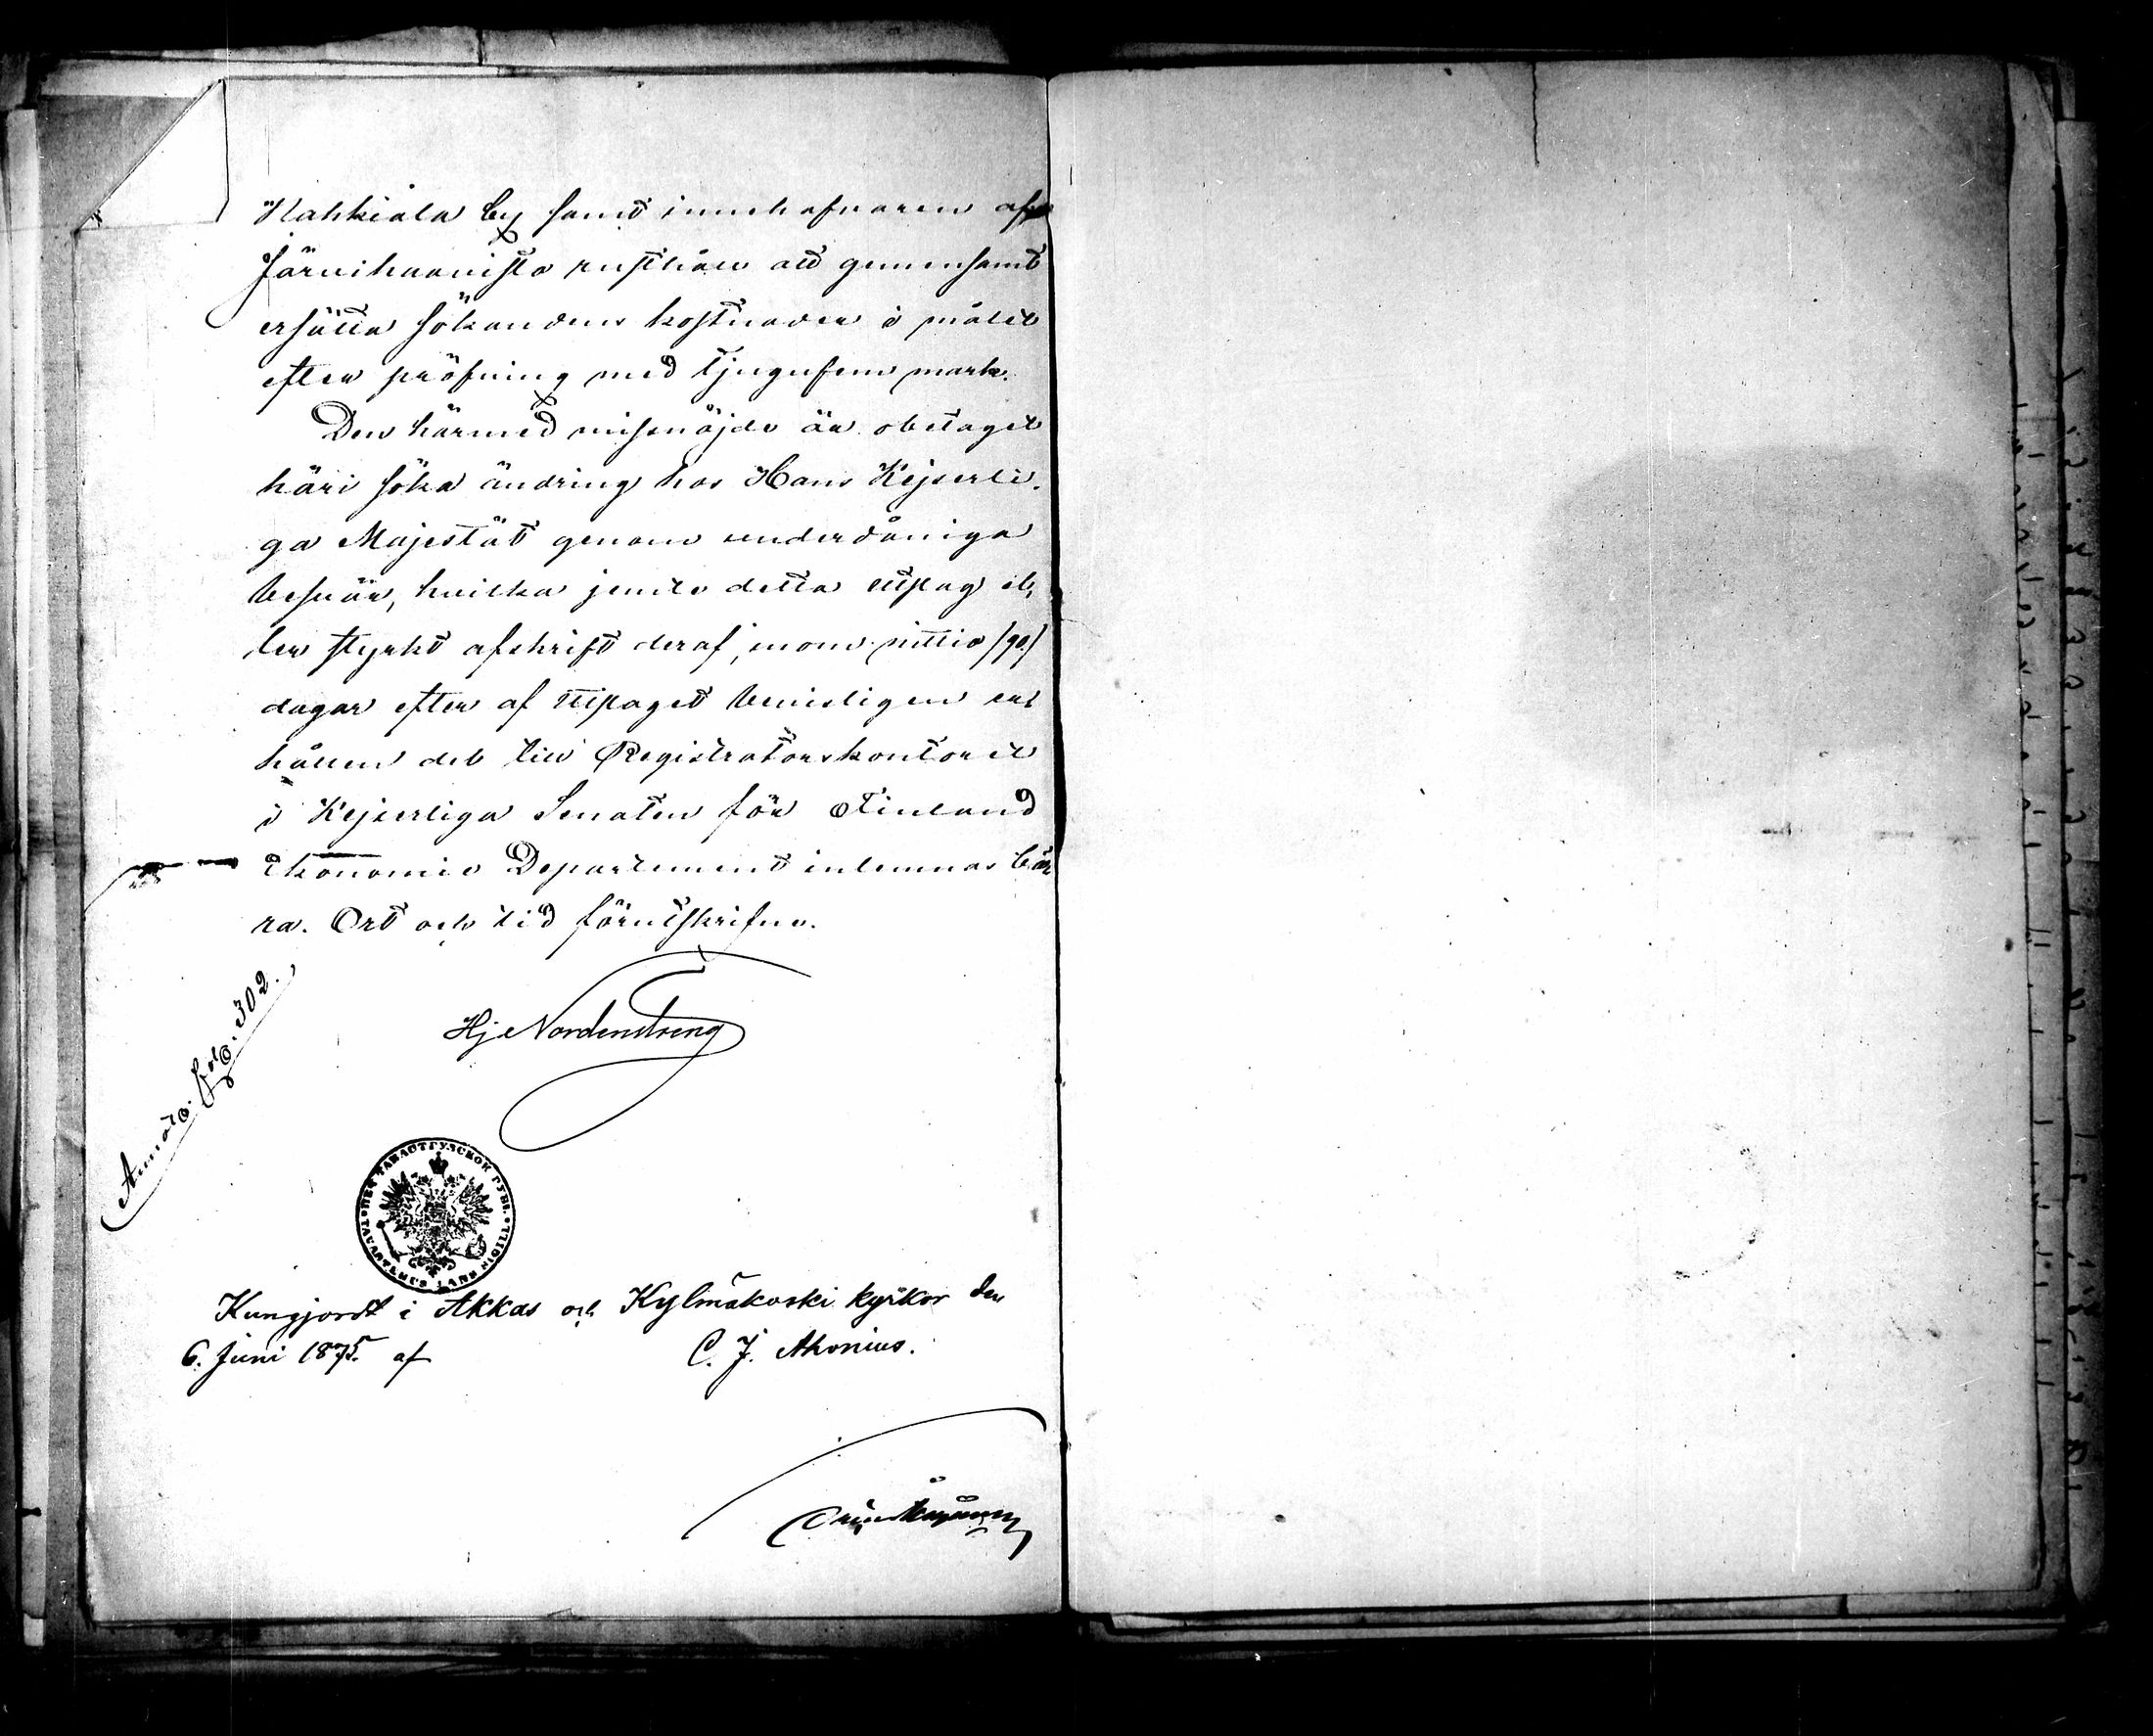 Hahkiala by samt innehafvaren af
Järvihaavisto rusthåll att gemensamt
ersätta sökandens kostnader i målet
efter pröfning med tjugufem mark.
Den härmed missnöjde är obetaget
häri söka ändring hos Hans Kejserli-
ga Majestät genom underdåniga
besvär, hvilka jemte detta utslag el-
ler styrkt afskrift deraf, inom nittio /90/
dagar efter af utslaget bevisligen er-
hållen del till Registratorskontoret
i Kejserliga Senaten för Finland
Ekonomie Departement inlemnas bö-
ra. Ort och tid förutskrifne.
Hj Nordenstreng
Annöto. folo. 302.
ПЕЧ. ТАВАСТГУЗСКОЙ ГУБ.
TAVASTEHUS LÄNS SIGILL
Kungjordt i Akkas och Kylmäkoski kyrkor den
6. Juni 1875. af C. J. Ahonius.